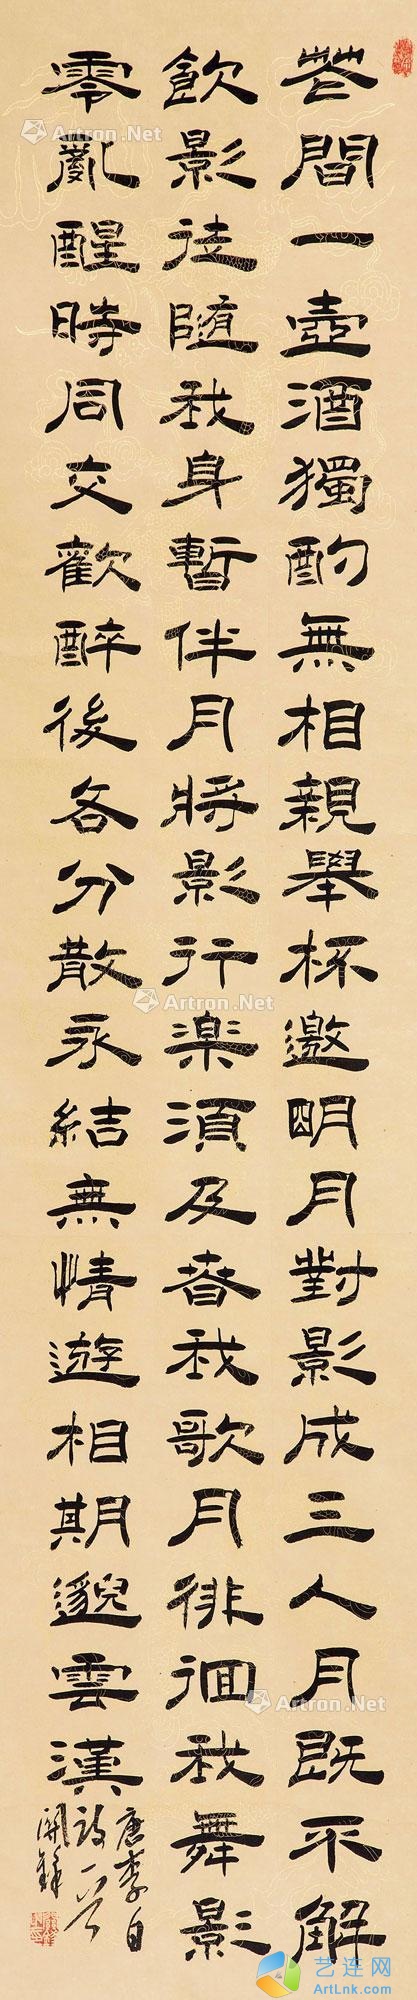 花間一壺酒獨酌無相親舉杯邀明月對影成三人月既不解
飲影徒随我身暫伴月將影行楽須及春我歌月徘徊我舞影
零亂醒時同交歡醉後各分散永結無情遊相期邈雲漢
唐李白
詩一首
開鋒
Artron.Net
Artron.Net
Artron.Net
Artron.Net
艺连网
ArtLnk.com